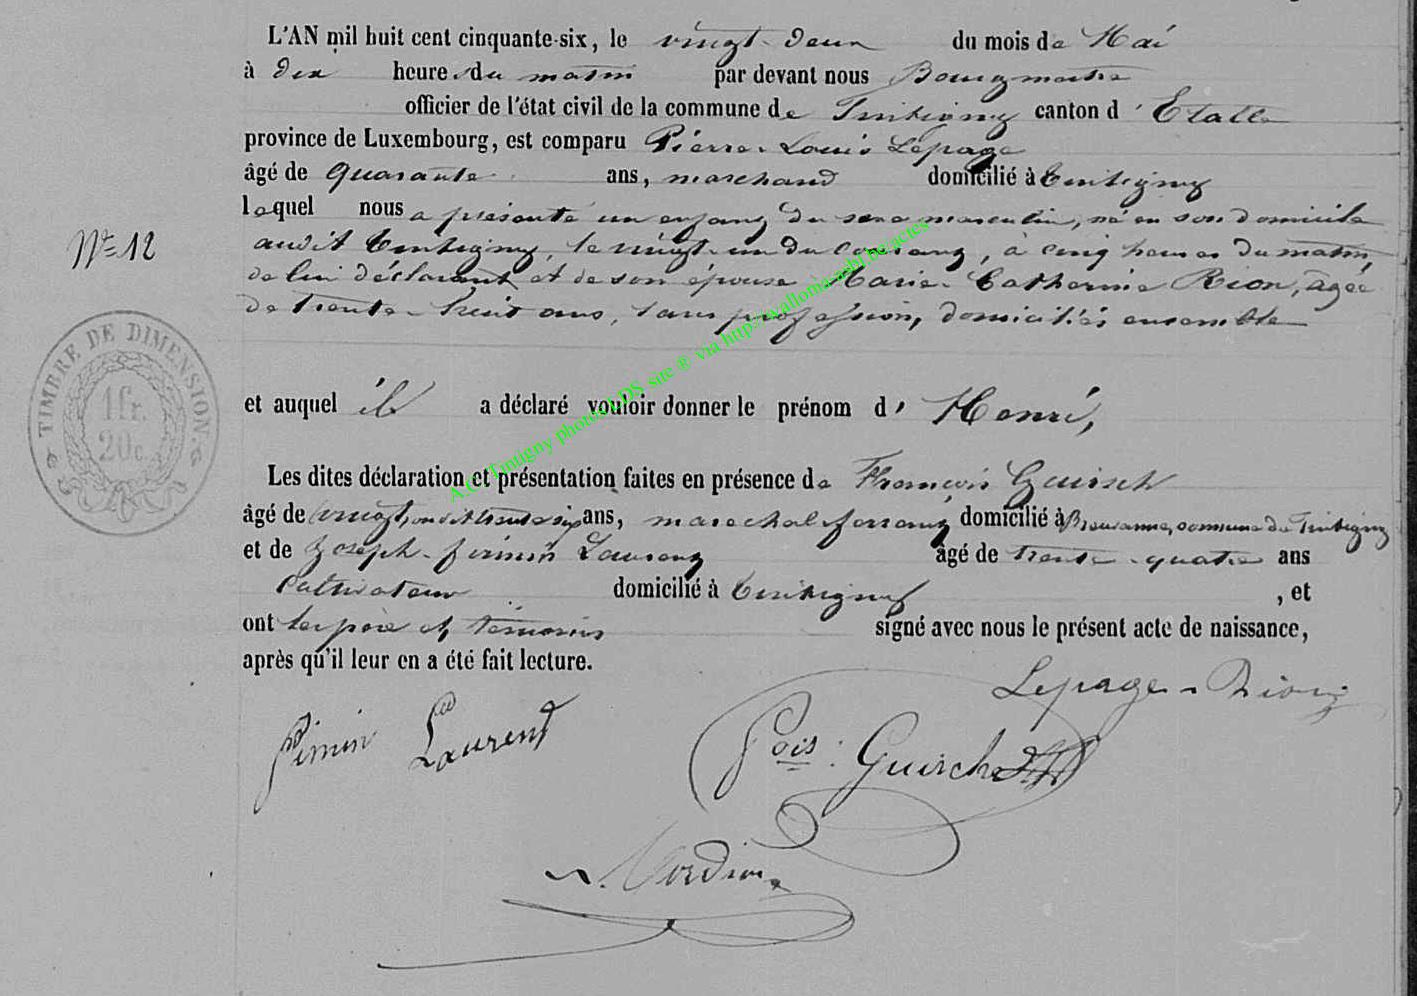 L'AN mil huit cent cinquante-six, le vingt-deux du mois de Mai
à dix heures du matin par devant nous Bourgmestre
officier de l'état civil de la commune de Tintigny canton d'Etalle
province de Luxembourg, est comparu Pierre-Louis Lepage
âgé de quarante ans, marchand domicilié à Tintigny
lequel nous a présenté un enfant du sexe masculin, né en son domicile
N° 12
audit Tintigny, le vingt-un du courant, à cinq heures du matin,
de lui déclarant et de son épouse Marie-Catherine Rion, agée
de trente-huit ans, sans profession, domiciliés ensemble
TIMBRE DE DIMENSION.
1 fr.
20 c.
et auquel il a déclaré vouloir donner le prénom d'Henri,
Les dites déclaration et présentation faites en présence de François Guirsch
âgé de ans, marechal ferrant domicilié à Breuvanne, commune de Tintigny
et de Joseph-firmin Laurent âgé de trente-quatre ans
cultivateur domicilié à Tintigny , et
ont les père et témoins signé avec nous le présent acte de naissance,
après qu'il leur en a été fait lecture.
Lepage-Rion
Firmin Laurent
Fois: Guirsch
A.C. Tintigny photos LDS site ® via http://wallonia-asbl.be/actes